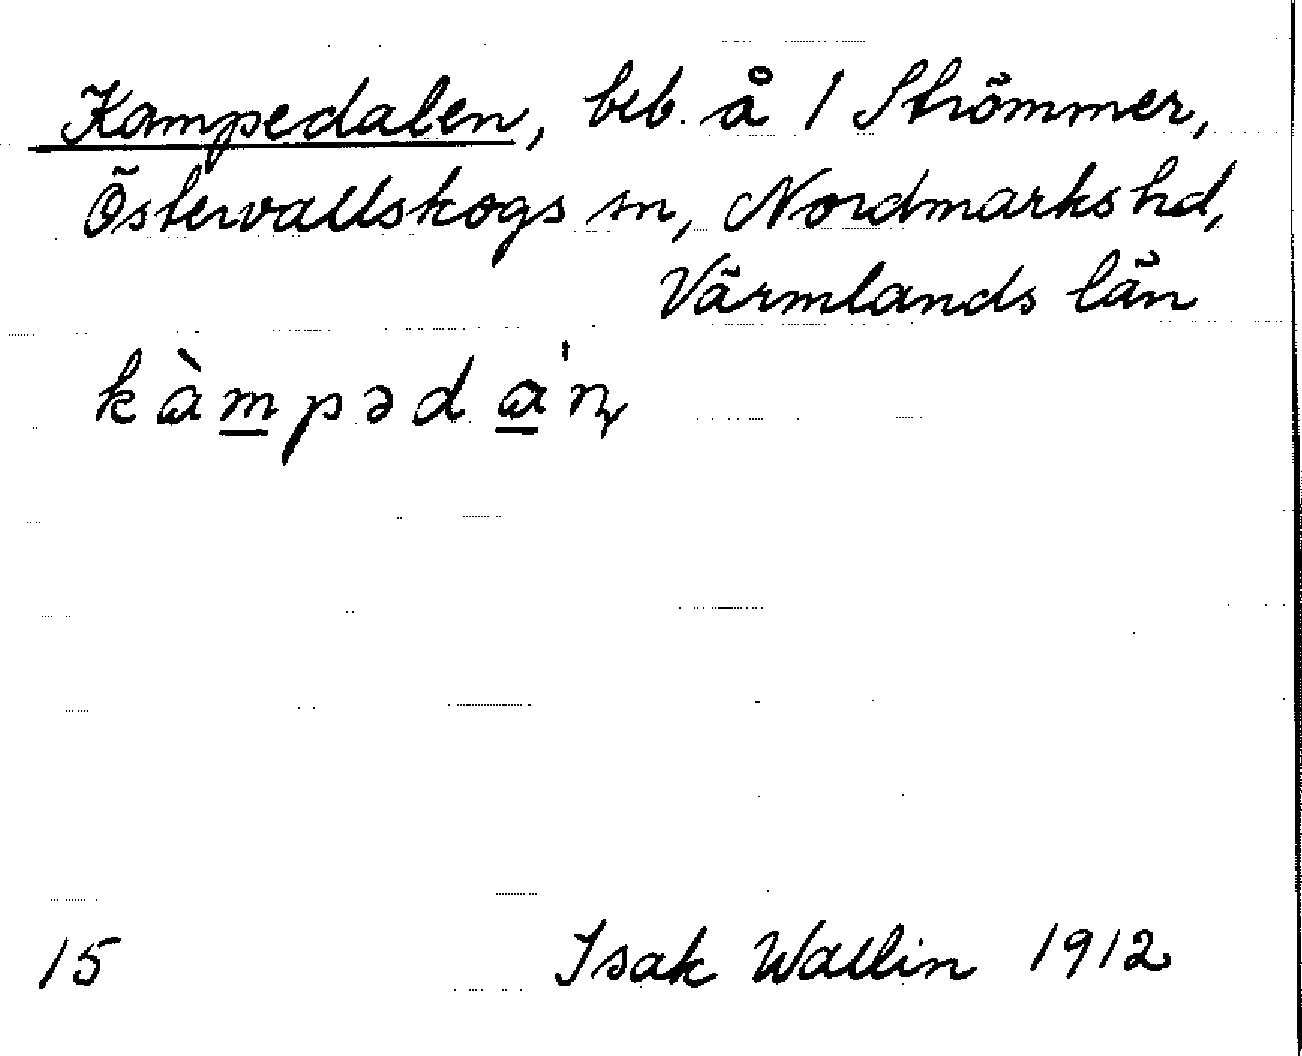 Kampedalen, beb. å 1 Strömmer,
Östervallskogs sn, Nordmarks hd,
Värmlands län
kàmpəda'ɳ
15 Isak Wallin 1912